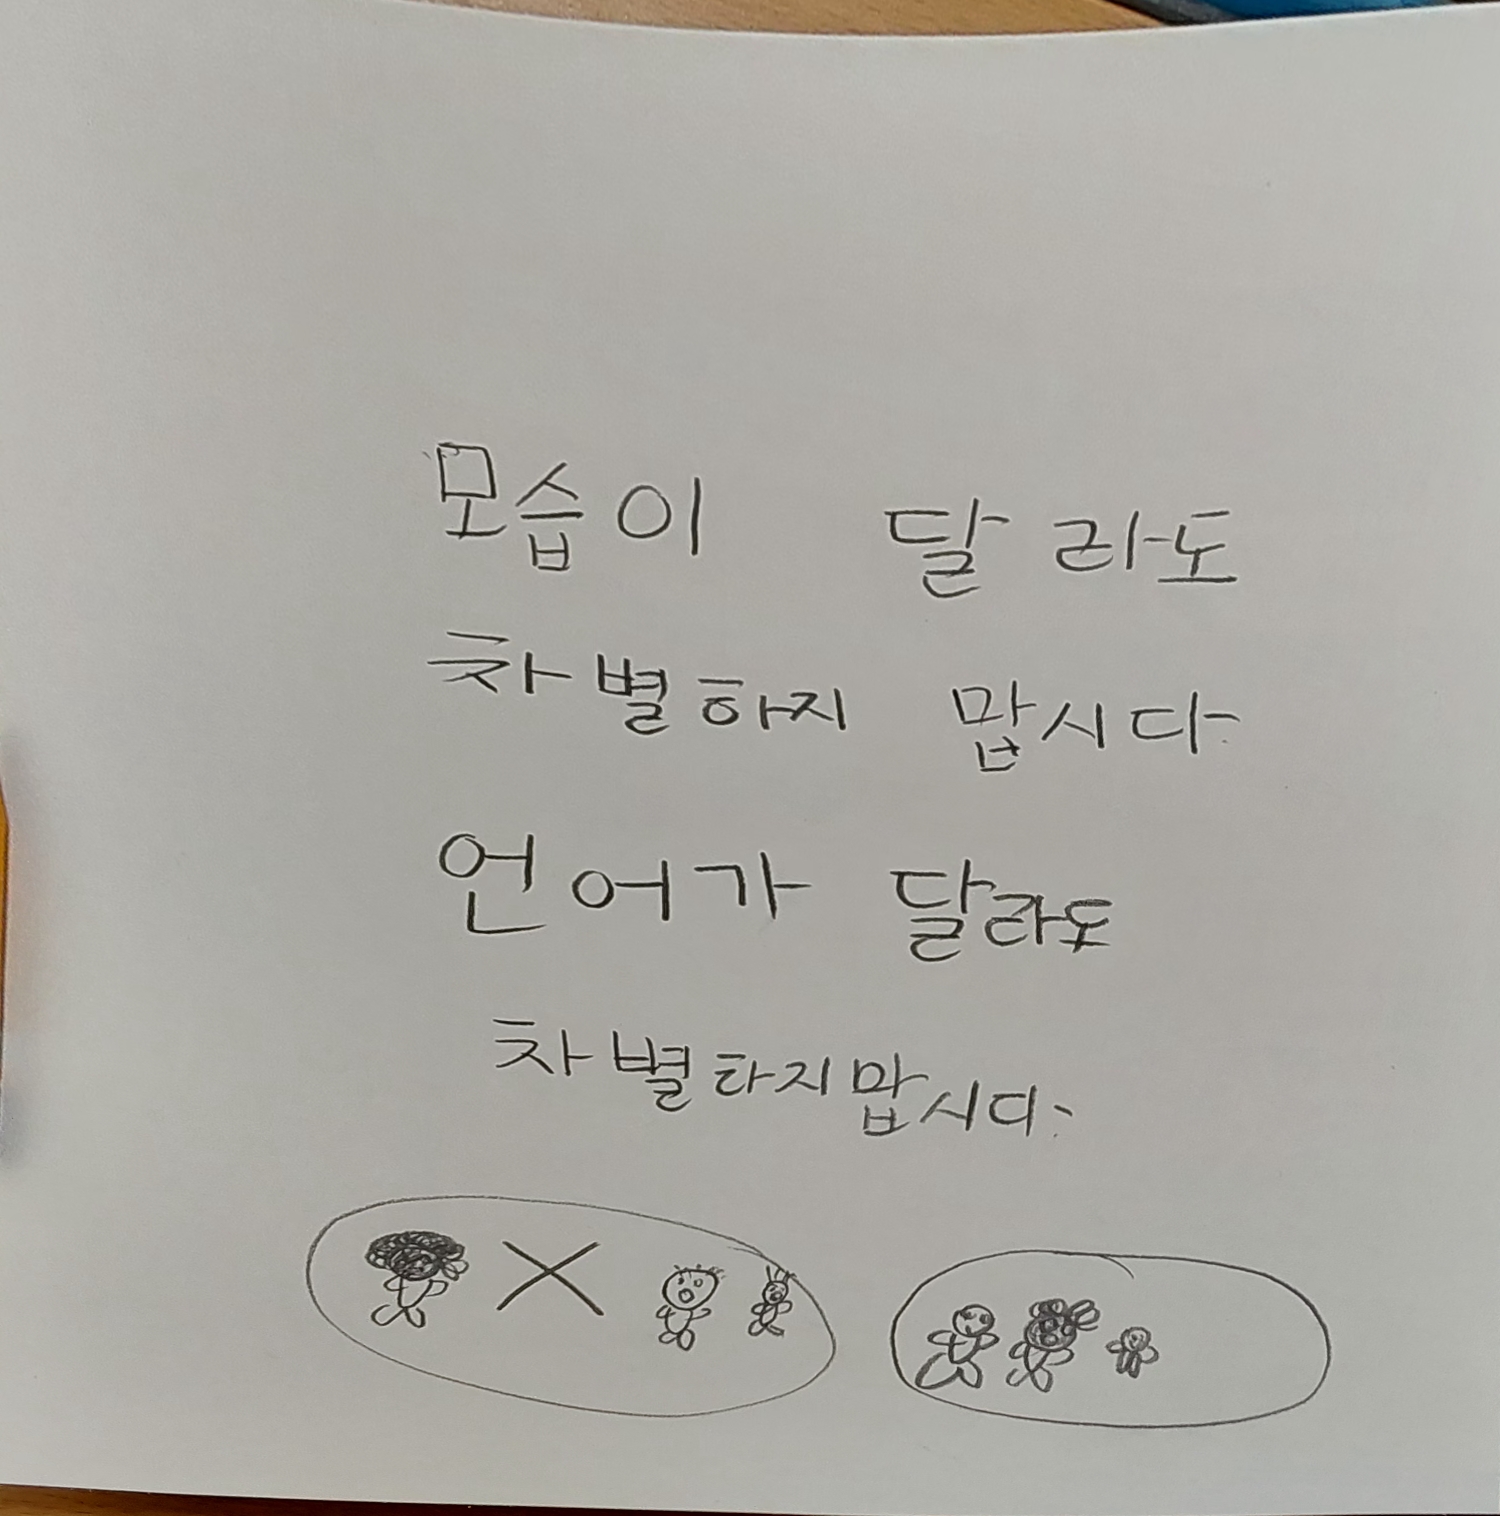 모습이 달라도
차별하지 맙시다.
언어가 달라도
차별하지맙시다.